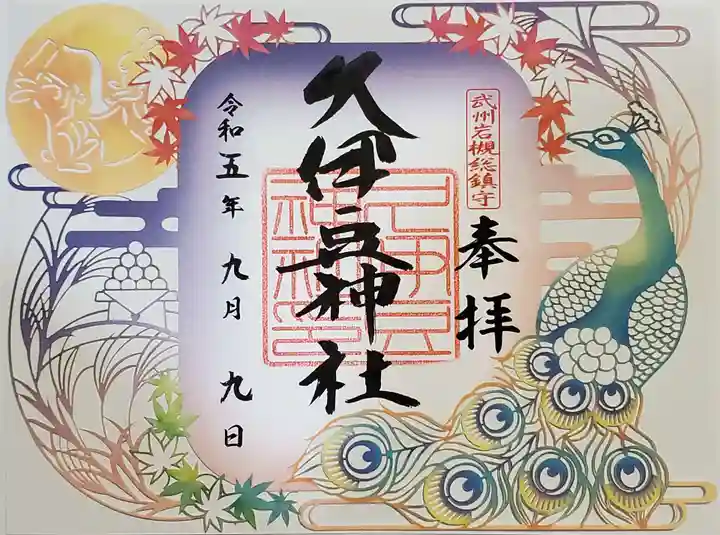 武州岩槻総鎮守
奉拝
久伊豆神社
令和五年 九月 九日